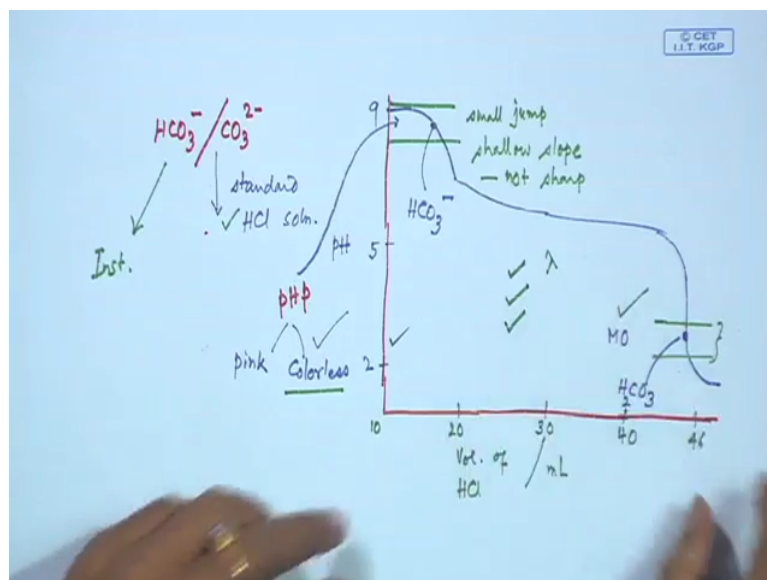 © CET
I.I.T. KGP
HCO3⁻ / CO3²⁻
standard
✓ HCl soln.
Inst.
pHp
pink Colorless ✓
pH
9
5
2
✓
small jump
shallow slope
– not sharp
HCO3⁻
✓ λ
✓
✓
MO ✓
H2CO3
10 20 30 40 46
Vol. of / mL
HCl